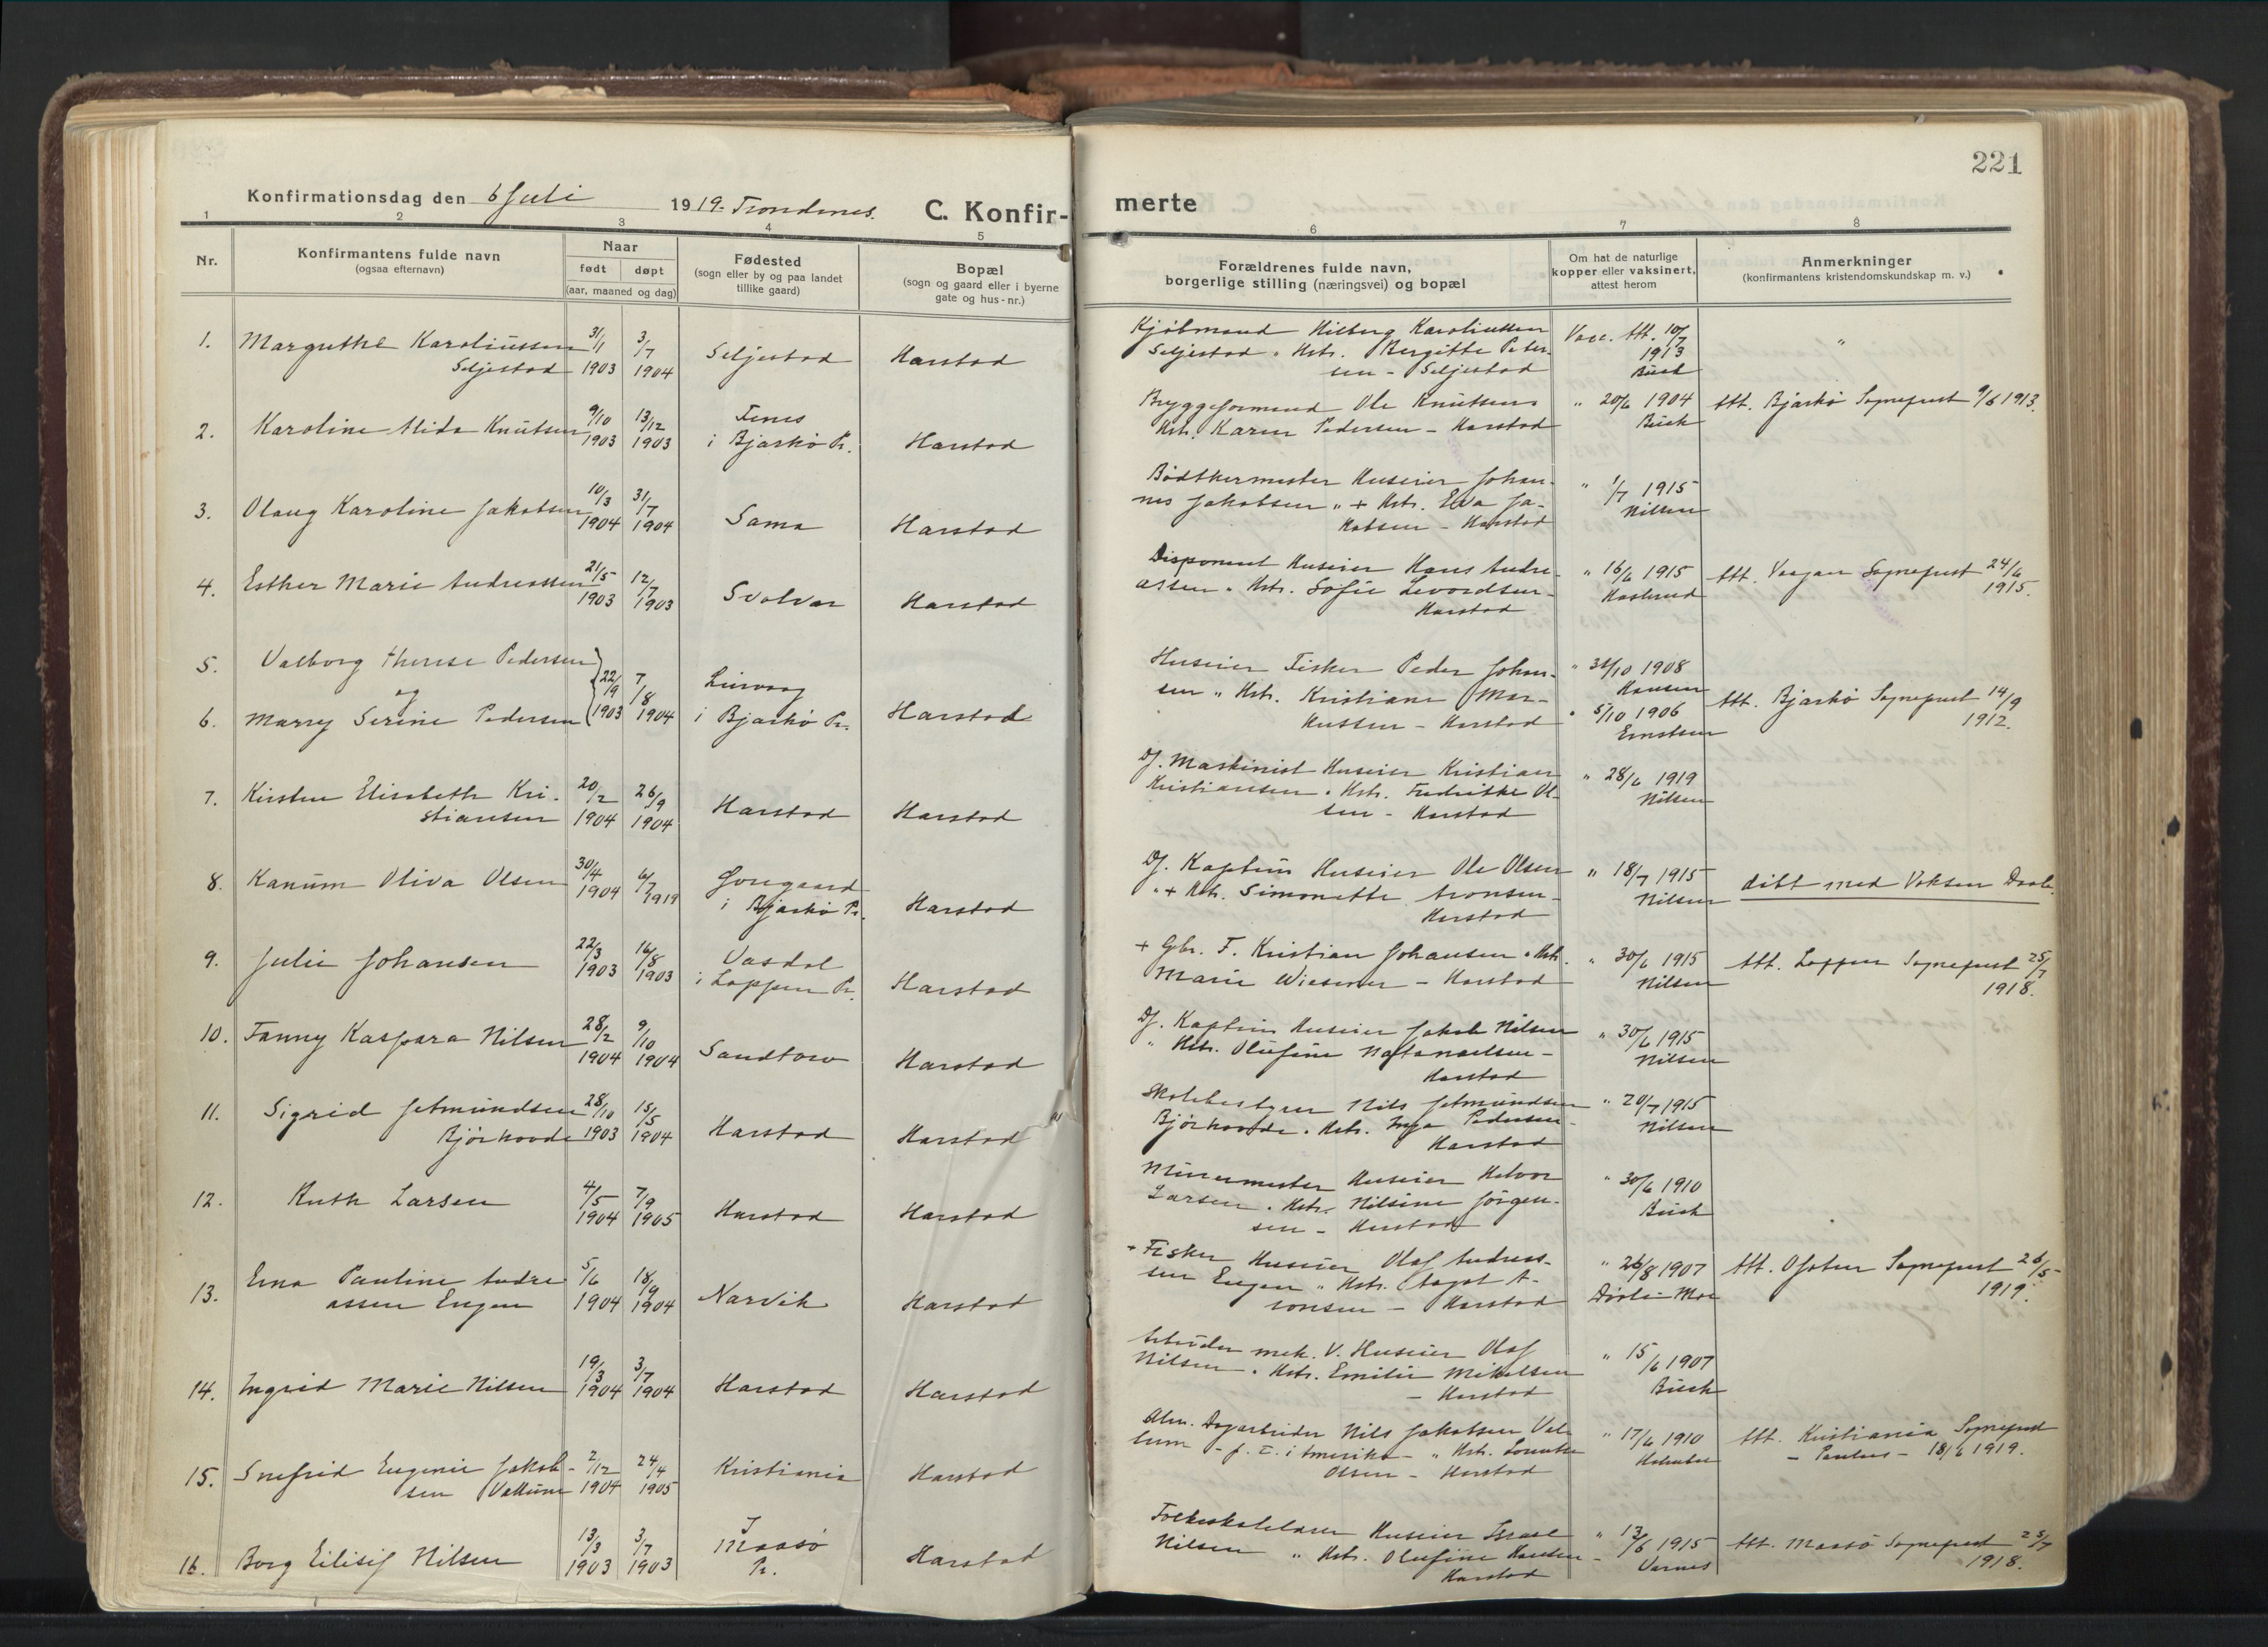 221
Konfirmationsdag den 6 Juli 1919. Trondenes.
C. Konfir-
merte
1
2
3
4
5
6
7
8
Nr.
Konfirmantens fulde navn
(ogsaa efternavn)
Naar
født
døpt
(aar, maaned og dag)
Fødested
(sogn eller by og paa landet
tillike gaard)
Bopæl
(sogn og gaard eller i byerne
gate og hus-nr.)
Forældrenes fulde navn,
borgerlige stilling (næringsvei) og bopæl
Om hat de naturlige
kopper eller vaksinert,
attest herom
Anmerkninger
(konfirmantens kristendomskundskap m. v.)
1. Margrethe Karoliussen 31/1 3/7
Seljestad 1903 1904 Seljestad Harstad
Kjøbmand Hilberg Karoliussen Vacc. Att. 10/7 "
Seljestad " Hstr. Bergitte Peder- 1913
sen - Seljestad Buch
2. Karoline Alida Knutsen 9/10 13/12 Fenes
1903 1903 i Bjarkö Pr. Harstad
Bryggeformand Ole Knutsen " 20/6 1904 Att. Bjarkö Sogneprest 9/6 1913.
Hstr. Karen Pedersen - Harstad Buch
3. Olaug Karoline Jakobsen 10/3 31/7
1904 1904 Sama Harstad
Bödtkermester Huseier Johan- " 1/7 1915
nes Jakobsen " + Hstr. Elva Ja- Nilsen
kobsen - Harstad
4. Esther Marie Andreassen 21/5 12/7
1903 1903 Svolvær Harstad
Disponent Huseier Hans Andre- " 16/6 1915 Att. Vaagan Sogneprest 24/6
assen " Hstr. Sofie Levordsen - 1915.
Harstad
5. Valborg Therese Pedersen
og 22/9 7/8 Leirvaag
6. Marry Serine Pedersen 1903 1904 i Bjarkö Pr. Harstad
Huseier Fisker Peder Johan- " 31/10 1908
sen " Hstr. Kristiane Mar- Hansen
kussen - Harstad " 5/10 1906 Att. Bjarkö Sogneprest 14/9
Ernstsen 1912.
7. Kirsten Elisabeth Kri- 20/2 26/9
stiansen 1904 1904 Harstad Harstad
Df. Maskinist Huseier Kristian " 28/6 1919
Kristiansen " Hstr. Fredrikke Ol- Nilsen
sen - Harstad
8. Kanum Oliva Olsen 30/4 6/7
1904 1919 i Bjarkö Pr. Harstad
Df. Kaptein Huseier Ole Olsen " 18/7 1915 döbt med Voksen Daab.
" + Hstr. Simonette Aronsen - Nilsen
Harstad
9. Julie Johansen 22/3 16/8 Vasdal
1903 1903 i Loppen Pr. Harstad
+ Gbr. F. Kristian Johansen " Hstr. " 30/6 1915 Att. Loppen Sogneprest 25/7
Marie Wiesener - Harstad Nilsen 1918.
10. Fanny Kaspara Nilsen 28/2 9/10
1904 1904 Sandtorv Harstad
Df. Kaptein Huseier Jakob Nilsen " 30/6 1915
" Hstr. Olufine Natanaelsen - Nilsen
Harstad
11. Sigrid Jetmundsen 28/10 15/5
Bjørhovde 1903 1904 Harstad Harstad
Skolebestyrer Nils Jetmundsen " 20/7 1915
Bjørhovde " Hstr. Inga Pedersen - Nilsen
Harstad
12. Ruth Larsen 4/5 7/9
1904 1905 Harstad Harstad
Minermester Huseier Halvor " 30/6 1910
Larsen " Hstr. Nilsine Jörgen- Buch
sen - Harstad
13. Erna Pauline Andre- 5/6 18/9
assen Engen 1904 1904 Narvik Harstad
+ Fisker Huseier Olaf Andreas- " 26/8 1907 Att. Ofoten Sogneprest 26/5
sen Engen " Hstr. Aagot A- 1919.
ronsen - Harstad
14. Ingrid Marie Nilsen 19/3 3/7
1904 1904 Harstad Harstad
Arbeider mek. V. Huseier Olaf " 15/6 1907
Nilsen " Hstr. Emilie Mikalsen Buch
- Harstad
15. Snefrid Eugenie Jakob- 2/12 24/4 Kristiania Harstad
sen Vallum 1904 1905
Alm. Dagarbeider Nils Jakobsen Val- " 17/6 1910 Att. Kristiania Sogneprest
lum - p. t. i Amerika - " Hstr. - Paulus - 18/6 1919.
Olsen - Harstad
16. Borg Eilisif Nilsen 13/3 3/7 Maasö
1903 1903 Pr. Harstad
Folkeskolelærer Huseier Israel " 13/6 1915 Att. Maasö Sogneprest 25/7
Nilsen " Hstr. Olufine Hansen - Varnes 1918.
Harstad